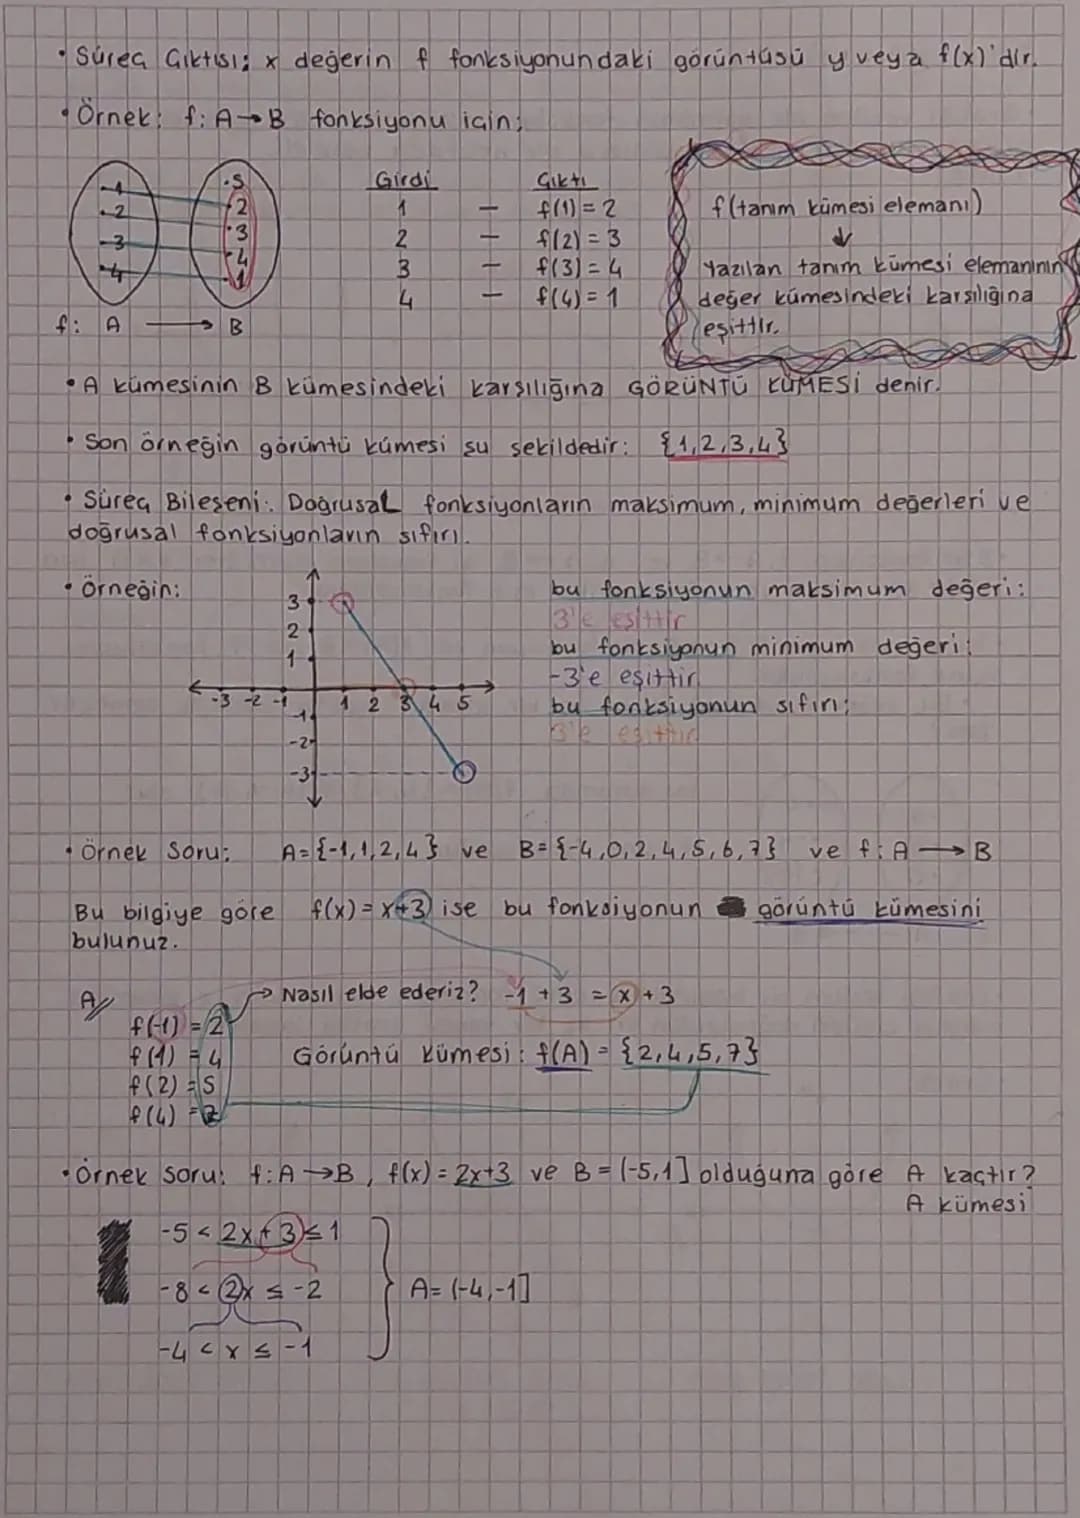 • Süreç Çıktısı; x değerin f fonksiyonundaki görüntüsü y veya f(x)'dir.
• Örnek: f: A→B fonksiyonu için;
1 •5
2 2
3 3
4 4
1
f: A → B
Girdi Çıktı
1 – f(1) = 2
2 – f(2) = 3
3 – f(3) = 4
4 – f(4) = 1
f(tanım kümesi elemanı)
↓
Yazılan tanım kümesi elemanının
değer kümesindeki karşılığına
eşittir.
• A kümesinin B kümesindeki karşılığına GÖRÜNTÜ KÜMESİ denir.
• Son örneğin görüntü kümesi şu şekildedir: {1,2,3,4}
• Süreç Bileşeni: Doğrusal fonksiyonların maksimum, minimum değerleri ve
doğrusal fonksiyonların sıfırı.
• Örneğin:
3
2
1
-3 -2 -1 1 2 3 4 5
-1
-2
-3
bu fonksiyonun maksimum değeri:
3'e eşittir
bu fonksiyonun minimum değeri;
-3'e eşittir
bu fonksiyonun sıfırı;
3'e eşittir
• Örnek Soru: A={-1,1,2,4} ve B={-4,0,2,4,5,6,7} ve f: A → B
Bu bilgiye göre f(x) = x+3 ise bu fonksiyonun görüntü kümesini
bulunuz.
A// → Nasıl elde ederiz? -1 + 3 = x + 3
f(-1) = 2
f(1) = 4
f(2) = 5
f(4) = 7
Görüntü Kümesi: f(A) = {2,4,5,7}
• Örnek Soru: f: A → B, f(x) = 2x+3 ve B = (-5,1] olduğuna göre A kaçtır?
A kümesi
-5 < 2x + 3 ≤ 1
-8 < 2x ≤ -2
A = (-4,-1]
-4 < x ≤ -1